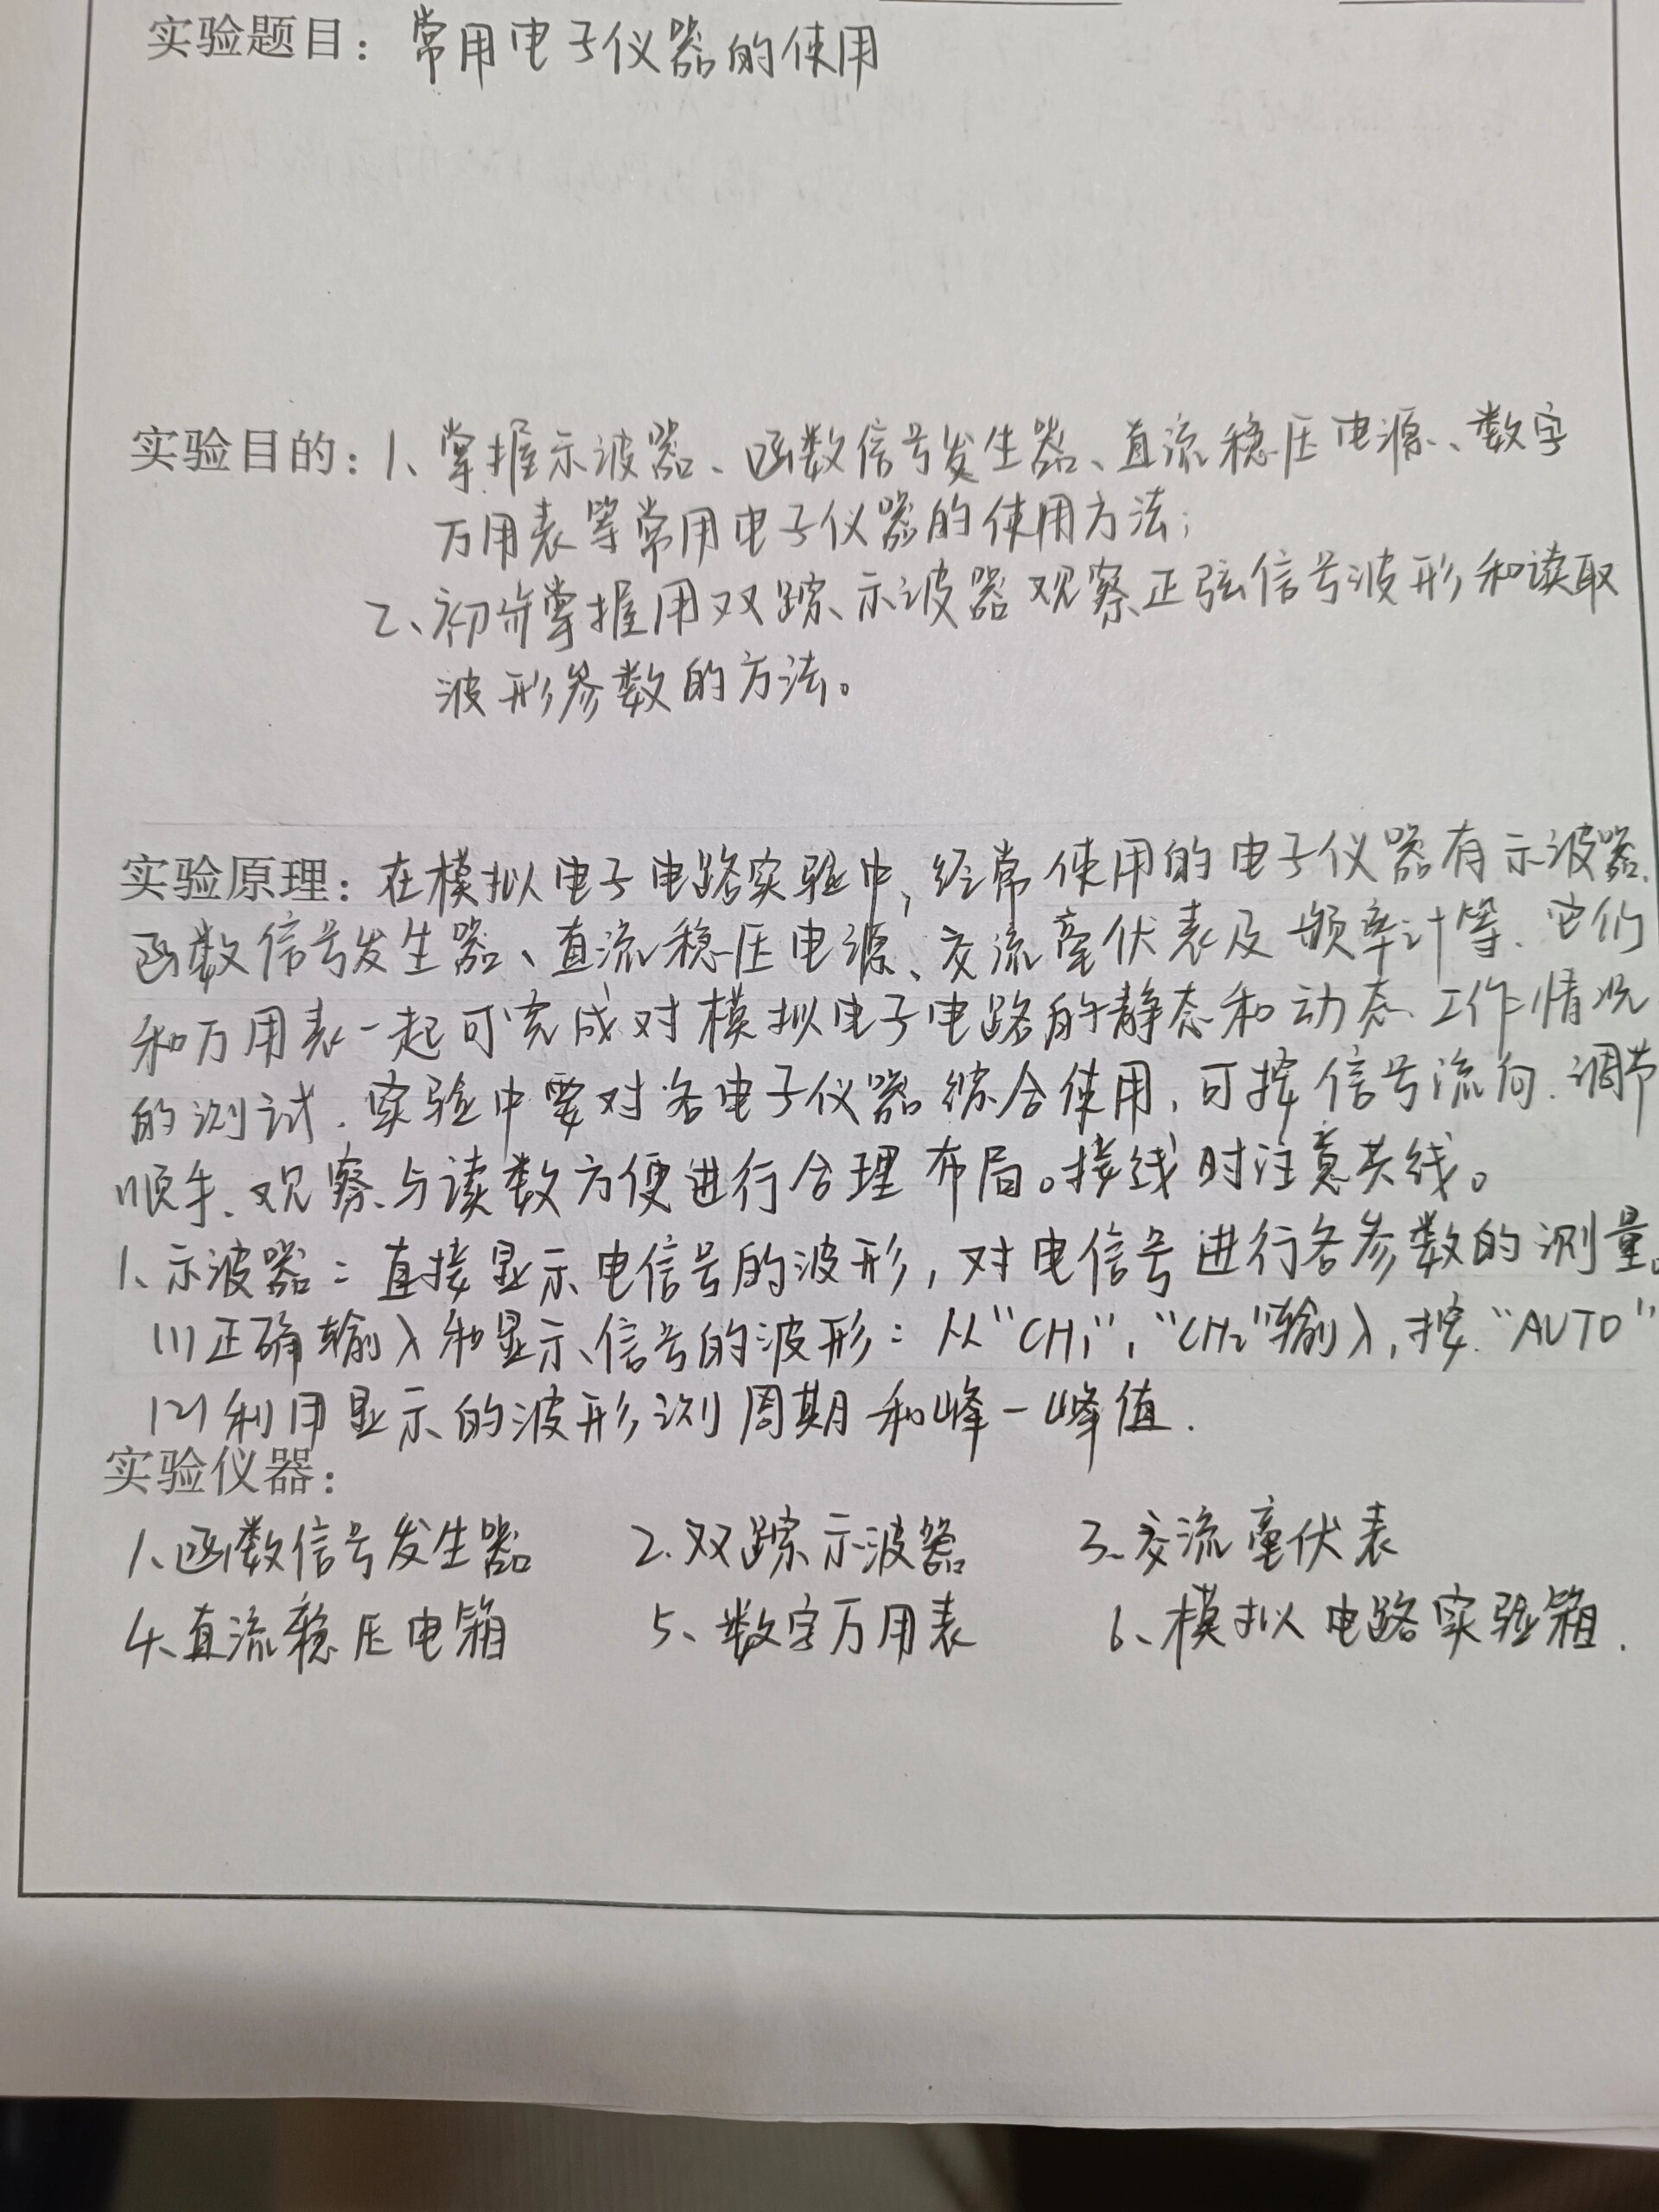 实验题目：常用电子仪器的使用
实验目的：1、掌握示波器、函数信号发生器、直流稳压电源、数字
万用表等常用电子仪器的使用方法；
2、初步掌握用双踪示波器观察正弦信号波形和读取
波形参数的方法。
实验原理：在模拟电子电路实验中，经常使用的电子仪器有示波器、
函数信号发生器、直流稳压电源、交流毫伏表及频率计等、它们
和万用表一起可完成对模拟电子电路的静态和动态工作情况
的测试. 实验中要对各电子仪器综合使用，可按信号流向、调节
顺手、观察与读数方便进行合理布局。接线时注意共线。
1、示波器：直接显示电信号的波形，对电信号进行各参数的测量。
(1)正确输入和显示信号的波形：从“CH1”，“CH2”输入，按“AUTO”
(2)利用显示的波形测周期和峰-峰值.
实验仪器：
1、函数信号发生器 2.双踪示波器 3、交流毫伏表
4、直流稳压电箱 5、数字万用表 6、模拟电路实验箱.